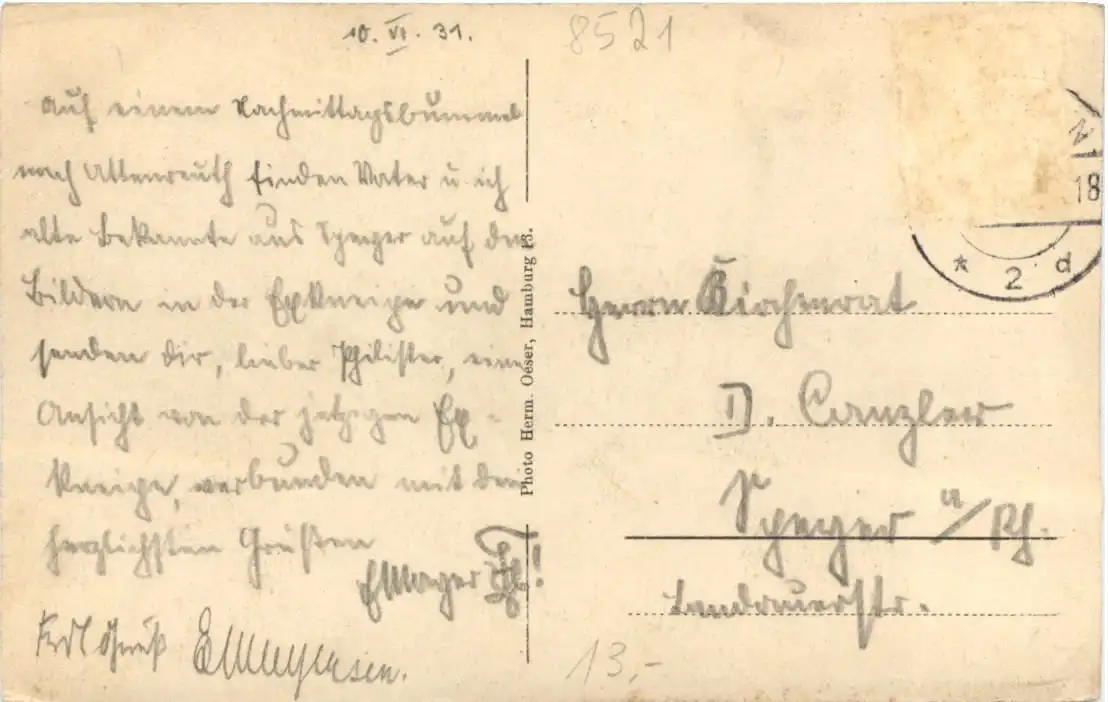 10. VI. 31.
8521
Auf einem Nachmittagsbummel
nach Atkenreuth finden Vater u. ich
alte Bekannte aus Speyer auf den
Bildern in der Exkneipe und
senden Dir, lieber Philister, eine
Ansicht von der jetzigen Ex-
kneipe, verbunden mit den
herzlichsten Grüßen
EMayer
Frdl Gruß
N
18
* 2 d
Photo Herm. Oeser, Hamburg 13.
Herrn Kirchenrat
D. Canzler
Speyer a/Rh.
Landauerstr.
13,-